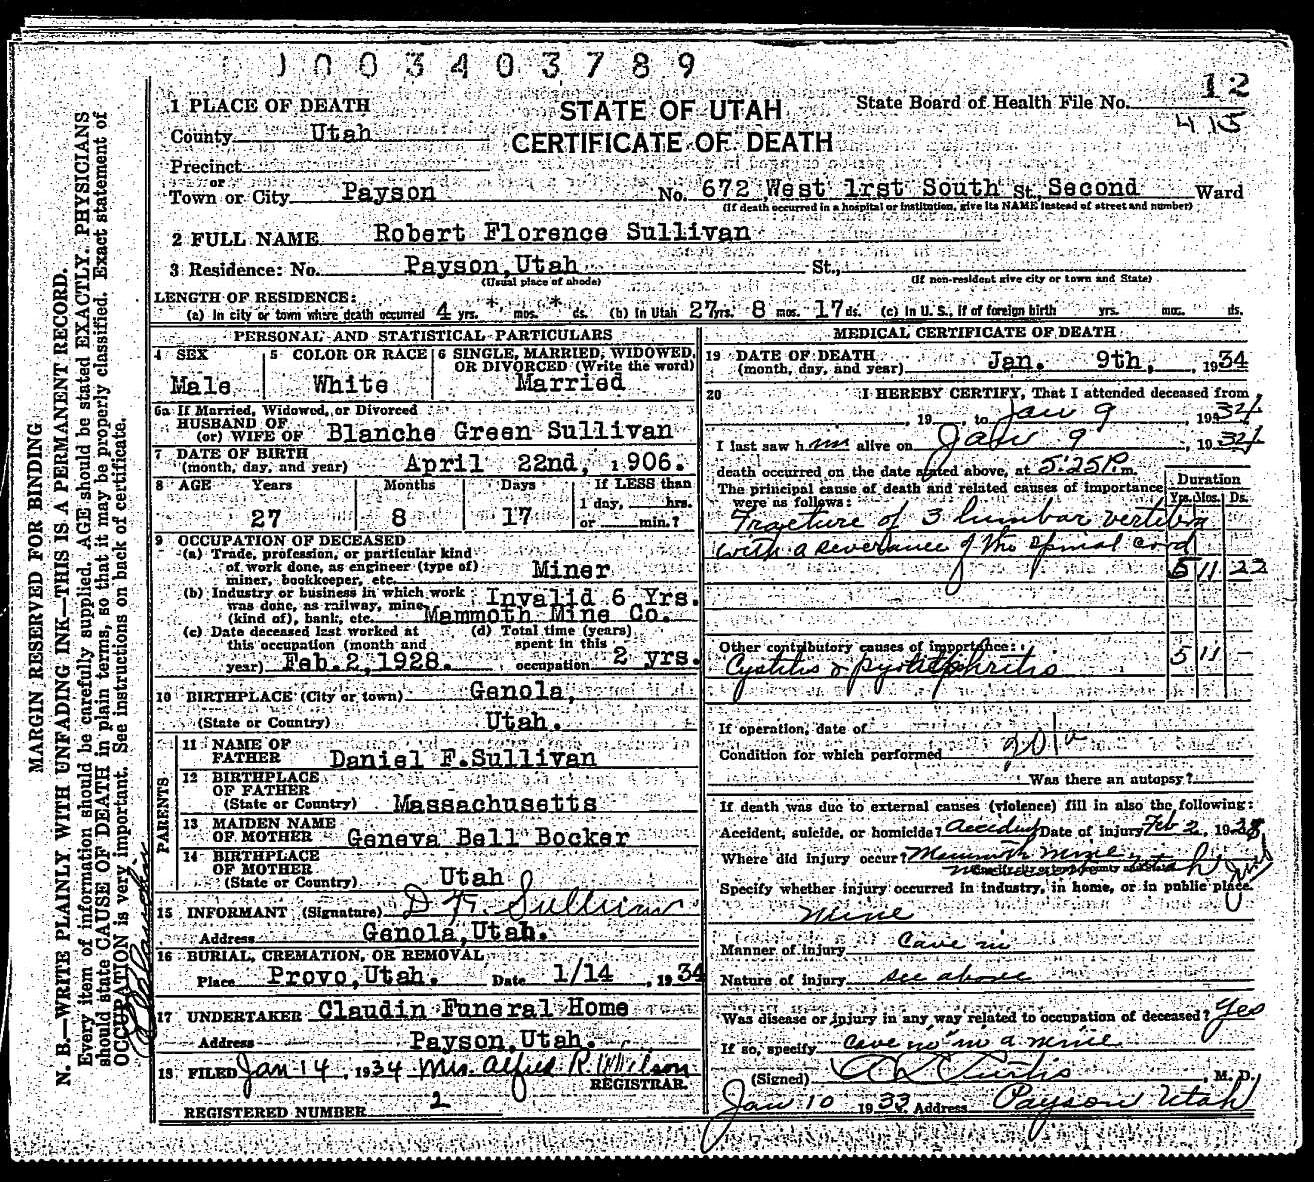 1003403789
12
1 PLACE OF DEATH
STATE OF UTAH
State Board of Health File No.
415
County Utah
CERTIFICATE OF DEATH
Precinct
or
Town or City Payson No. 672 West 1rst South St., Second Ward
(If death occurred in a hospital or institution, give its NAME instead of street and number)
2 FULL NAME Robert Florence Sullivan
3 Residence: No. Payson, Utah St.,
(Usual place of abode) (If non-resident give city or town and State)
LENGTH OF RESIDENCE:
(a) In city or town where death occurred 4 yrs. * mos. * ds. (b) In Utah 27 yrs. 8 mos. 17 ds. (c) In U. S., if of foreign birth yrs. mos. ds.
PERSONAL AND STATISTICAL PARTICULARS
4 SEX 5 COLOR OR RACE 6 SINGLE, MARRIED, WIDOWED,
OR DIVORCED (Write the word)
Male White Married
6a If Married, Widowed, or Divorced
HUSBAND OF
(or) WIFE OF Blanche Green Sullivan
7 DATE OF BIRTH
(month, day, and year) April 22nd, 1906.
8 AGE Years Months Days If LESS than
1 day, hrs.
27 8 17 or min.?
9 OCCUPATION OF DECEASED
(a) Trade, profession, or particular kind
of work done, as engineer (type of)
miner, bookkeeper, etc. Miner
(b) Industry or business in which work Invalid 6 Yrs.
was done, as railway, mine
(kind of), bank, etc. Mammoth Mine Co.
(c) Date deceased last worked at (d) Total time (years)
this occupation (month and spent in this
year) Feb. 2, 1928. occupation 2 yrs.
10 BIRTHPLACE (City or town) Genola,
(State or Country) Utah.
PARENTS
11 NAME OF
FATHER Daniel F. Sullivan
12 BIRTHPLACE
OF FATHER
(State or Country) Massachusetts
13 MAIDEN NAME
OF MOTHER Geneva Bell Bocker
14 BIRTHPLACE
OF MOTHER
(State or Country) Utah
15 INFORMANT (Signature) D F. Sullivan
Address Genola, Utah.
16 BURIAL, CREMATION, OR REMOVAL
Place Provo, Utah. Date 1/14, 1934
17 UNDERTAKER Claudin Funeral Home
Address Payson, Utah.
18 FILED Jan 14, 1934 Mrs. Alfred R. Wilson
REGISTRAR.
REGISTERED NUMBER 2
MEDICAL CERTIFICATE OF DEATH
19 DATE OF DEATH
(month, day, and year) Jan. 9th, , 1934
20 I HEREBY CERTIFY, That I attended deceased from
, 19 , to Jan 9, 1934
I last saw him alive on Jan 9, 1934
death occurred on the date stated above, at 5:25 P. m.
The principal cause of death and related causes of importance
were as follows:
Duration
Yrs. Mos. Ds.
Fracture of 3 lumbar vertebra
with a severance of the spinal cord
5 11 23
Other contributory causes of importance:
Cystitis & pyonephritis 5 11 –
If operation, date of
Condition for which performed
Was there an autopsy?
If death was due to external causes (violence) fill in also the following:
Accident, suicide, or homicide? Accident Date of injury Feb 2, 1928
Where did injury occur? Mammoth Mine
Utah
Specify whether injury occurred in industry, in home, or in public place.
Mine
Manner of injury Cave in
Nature of injury see above
Was disease or injury in any way related to occupation of deceased? Yes
If so, specify Cave in in a mine
(Signed) A L Curtis, M. D.
Jan 10 1933. Address Payson Utah
MARGIN RESERVED FOR BINDING
N. B.—WRITE PLAINLY WITH UNFADING INK—THIS IS A PERMANENT RECORD.
Every item of information should be carefully supplied. AGE should be stated EXACTLY. PHYSICIANS
should state CAUSE OF DEATH in plain terms, so that it may be properly classified. Exact statement of
OCCUPATION is very important. See instructions on back of certificate.